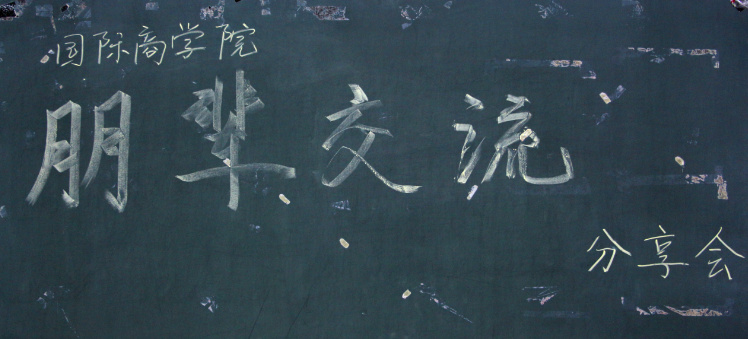 国际商学院
朋辈交流
分享会